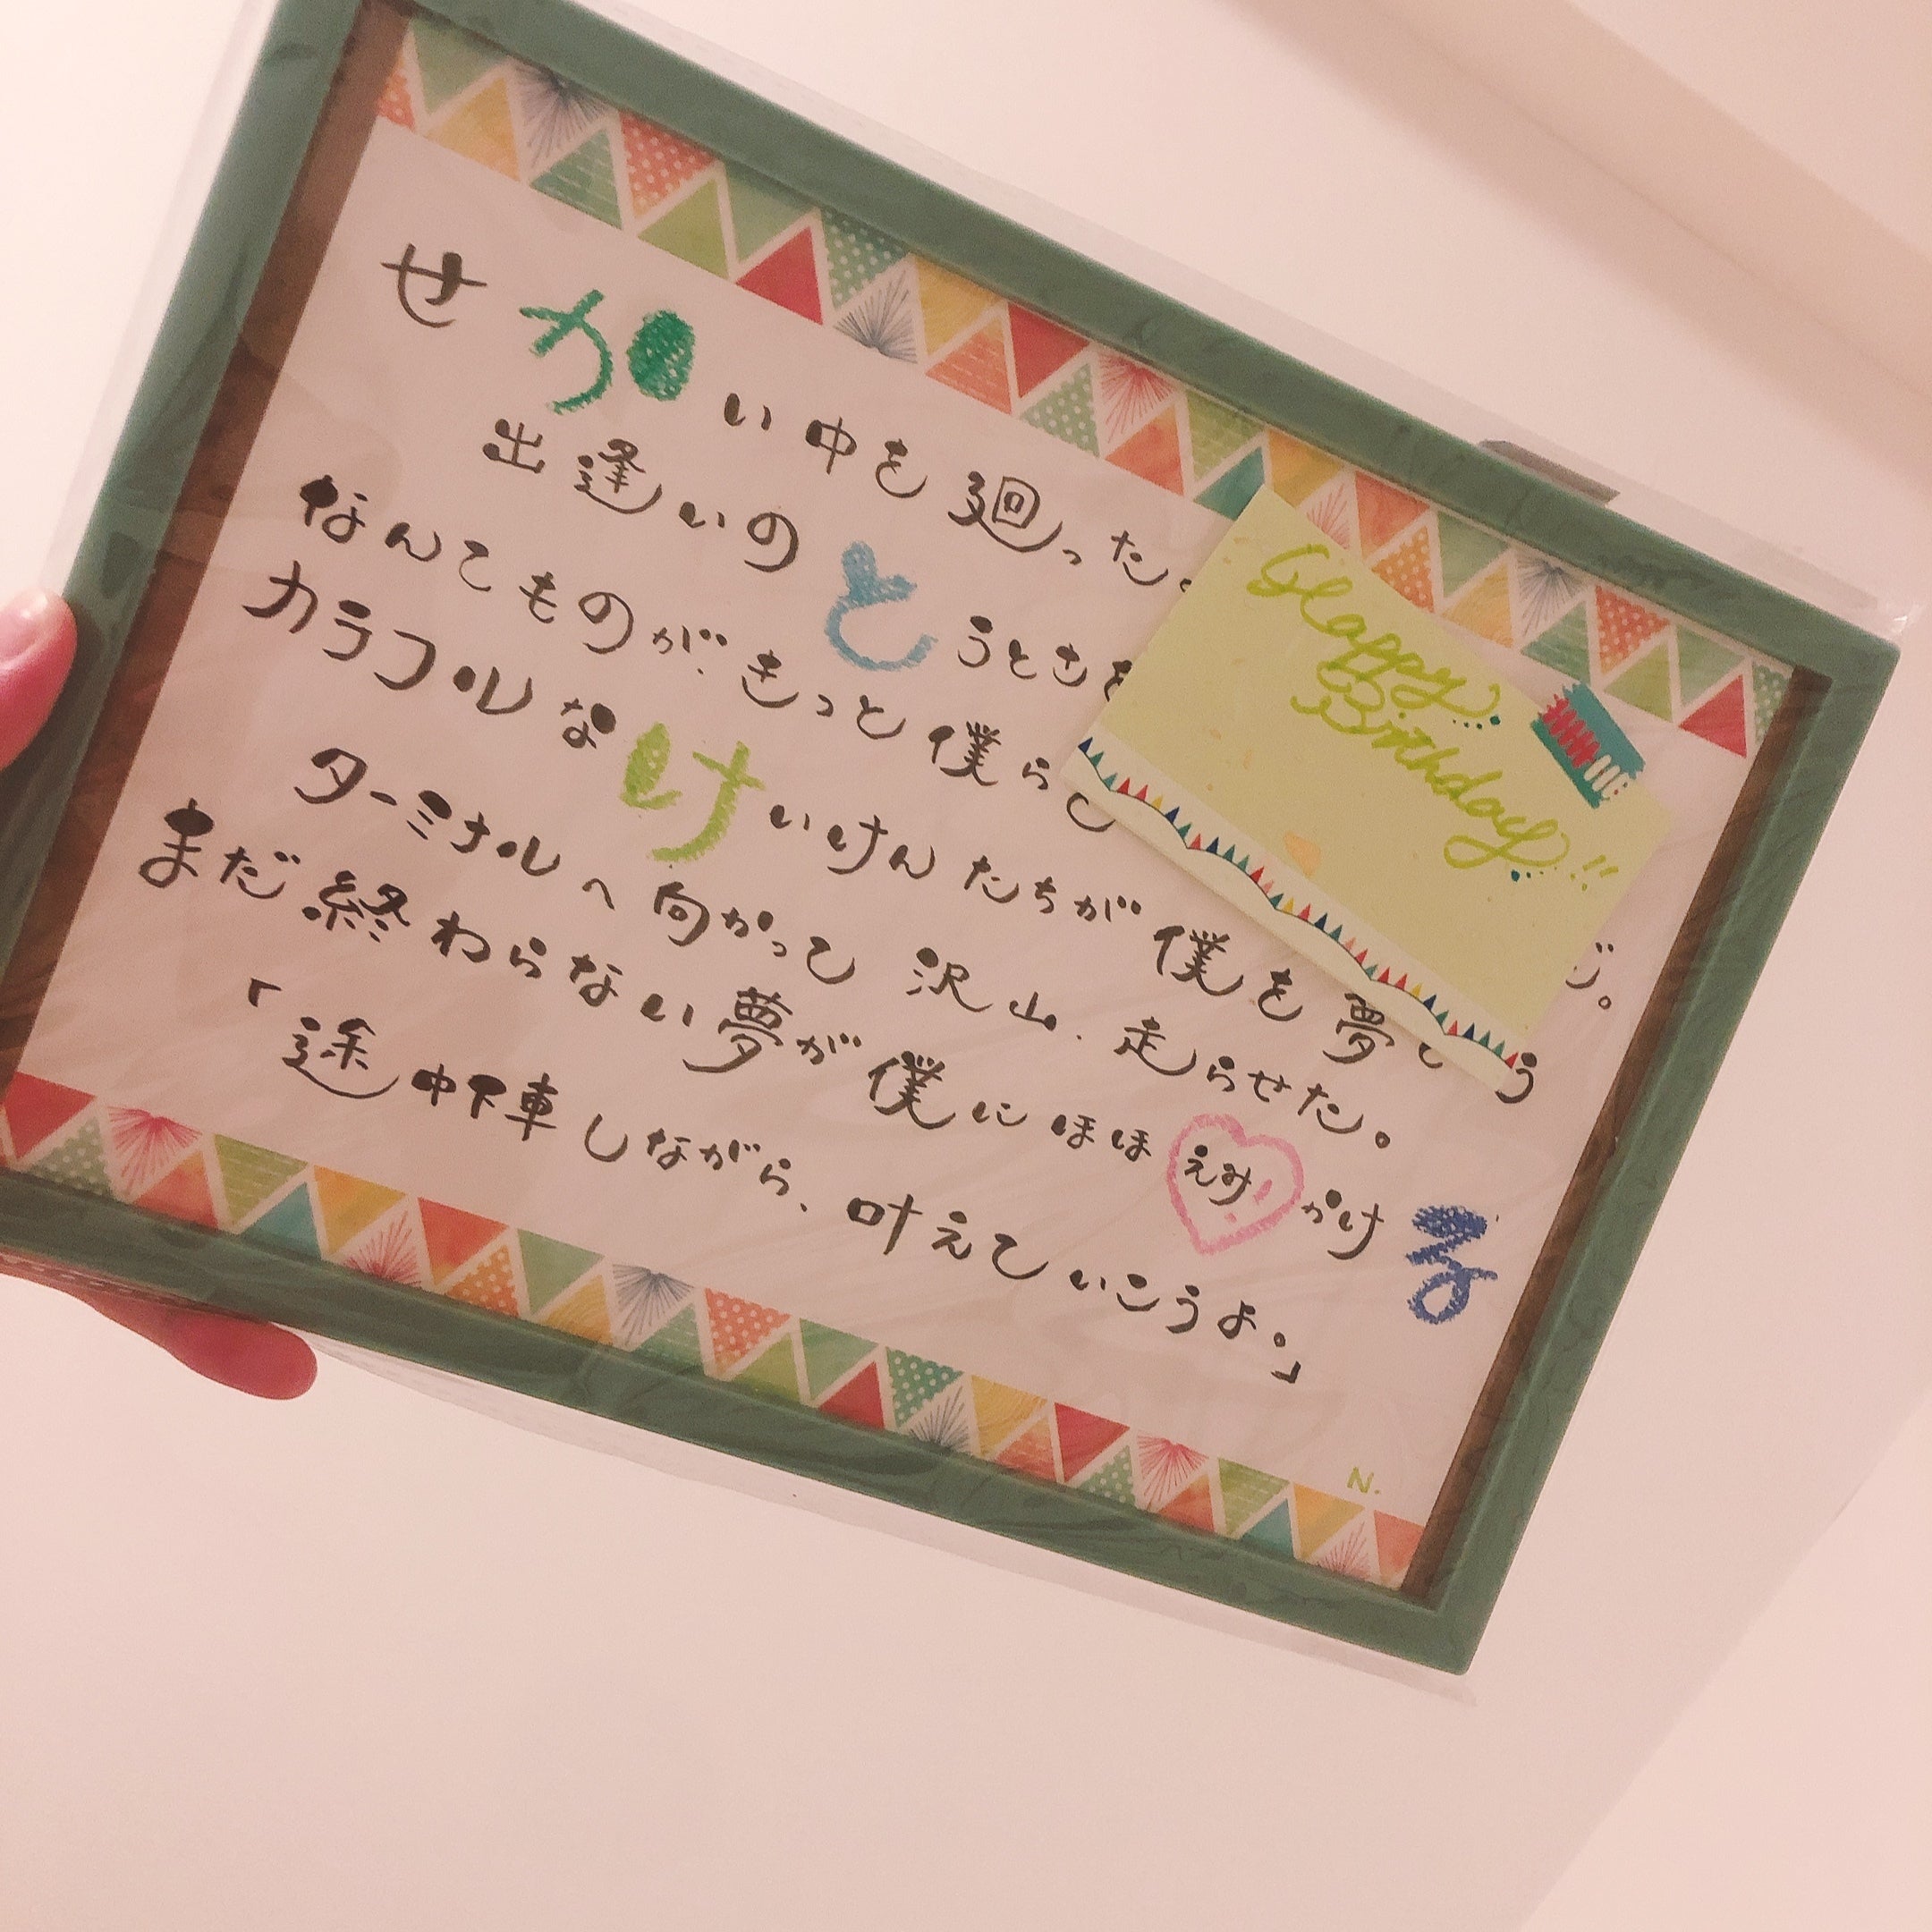 せかい中を廻った。
出逢いのとうとさを
なんてものが、きっと僕らし
カラフルなけいけんたちが僕を夢という
ターミナルへ向かって沢山、走らせた。
まだ終わらない夢が僕にほほえみかける
「途中下車しながら、叶えていこうよ。」
N.
Happy
Birthday!!